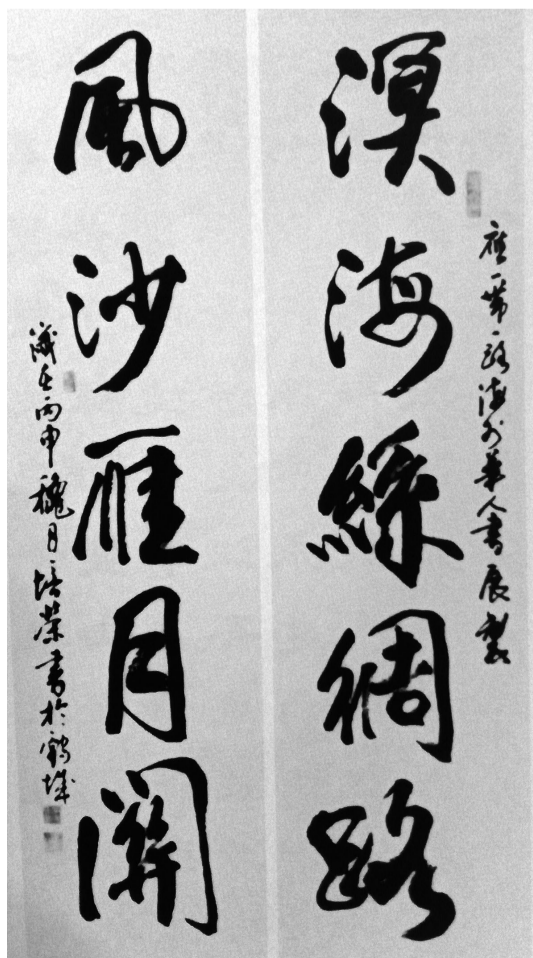 溟海絲綢路
應一帶一路海外華人書展製
風沙雁月關
歲在丙申穐月培榮書於鶴城